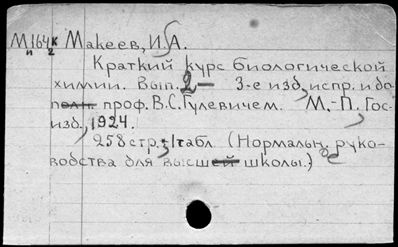 М164к Макеев, И.А.
и 2
Краткий курс биологической
химии. Вып. 2 — 3-е изд., испр. и до
полн. проф. В.С. Гулевичем. М.-П., Гос-
изд., 1924.
258 стр., 1 табл. (Нормальн. руко-
водства для высшей школы.)